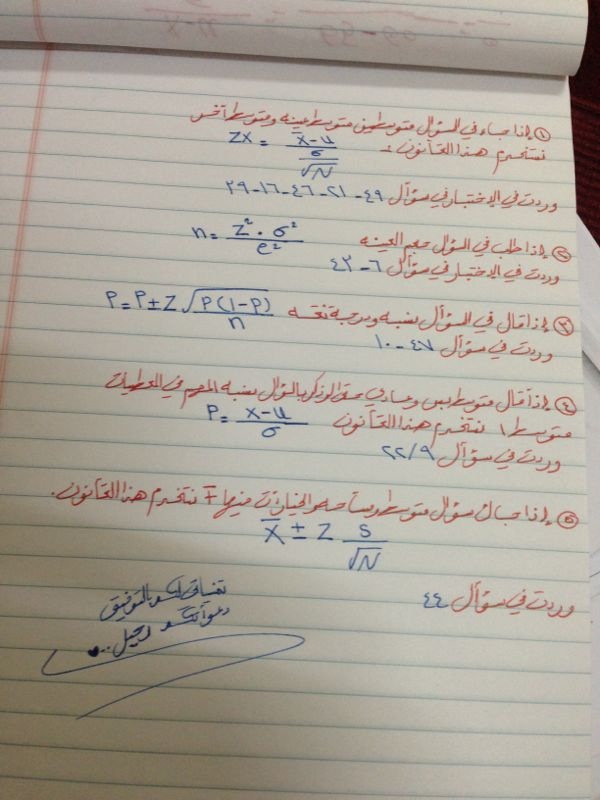 ① إذا جاء في السؤال متوسطين متوسط عينه ومتوسط آخر
نستخدم هذا القانون :- ZX = (x̄ - u) / (σ / √N)
وردت في الإختبار في سؤال ٤٩-٢١-٤٦-١٦-٢٩
② إذا طلب في السؤال حجم العينه n = (Z² . σ²) / e²
وردت في الإختبار في سؤال ٦-٤٢
③ إذا قال في السؤال بنسبه ودرجة ثقه P = P ± Z √(P(1-P) / n)
وردت في سؤال ٤٧-١٠
④ إذا قال متوسط بس وعادي حتى لو ذكر بالسؤال بنسبه المهم في المعطيات
متوسط ١ نستخدم هذا القانون P = (x - u) / σ
وردت في سؤال ٢٢/٩
⑤ إذا جاك سؤال متوسط الخيارات فيها ∓ نستخدم هذا القانون.
X̄ ± Z S / √N
وردت في سؤال ٤٤
بالتوفيق